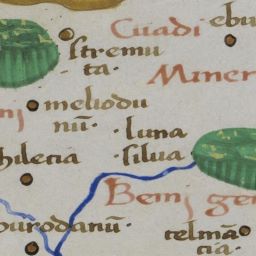 Cuadi
ebu
ſtremu
ta·
Miner
nj
meliodu
nū·
·luna
ſilua
hilecia
Bemj gen
burodanū·
telmā
cia·